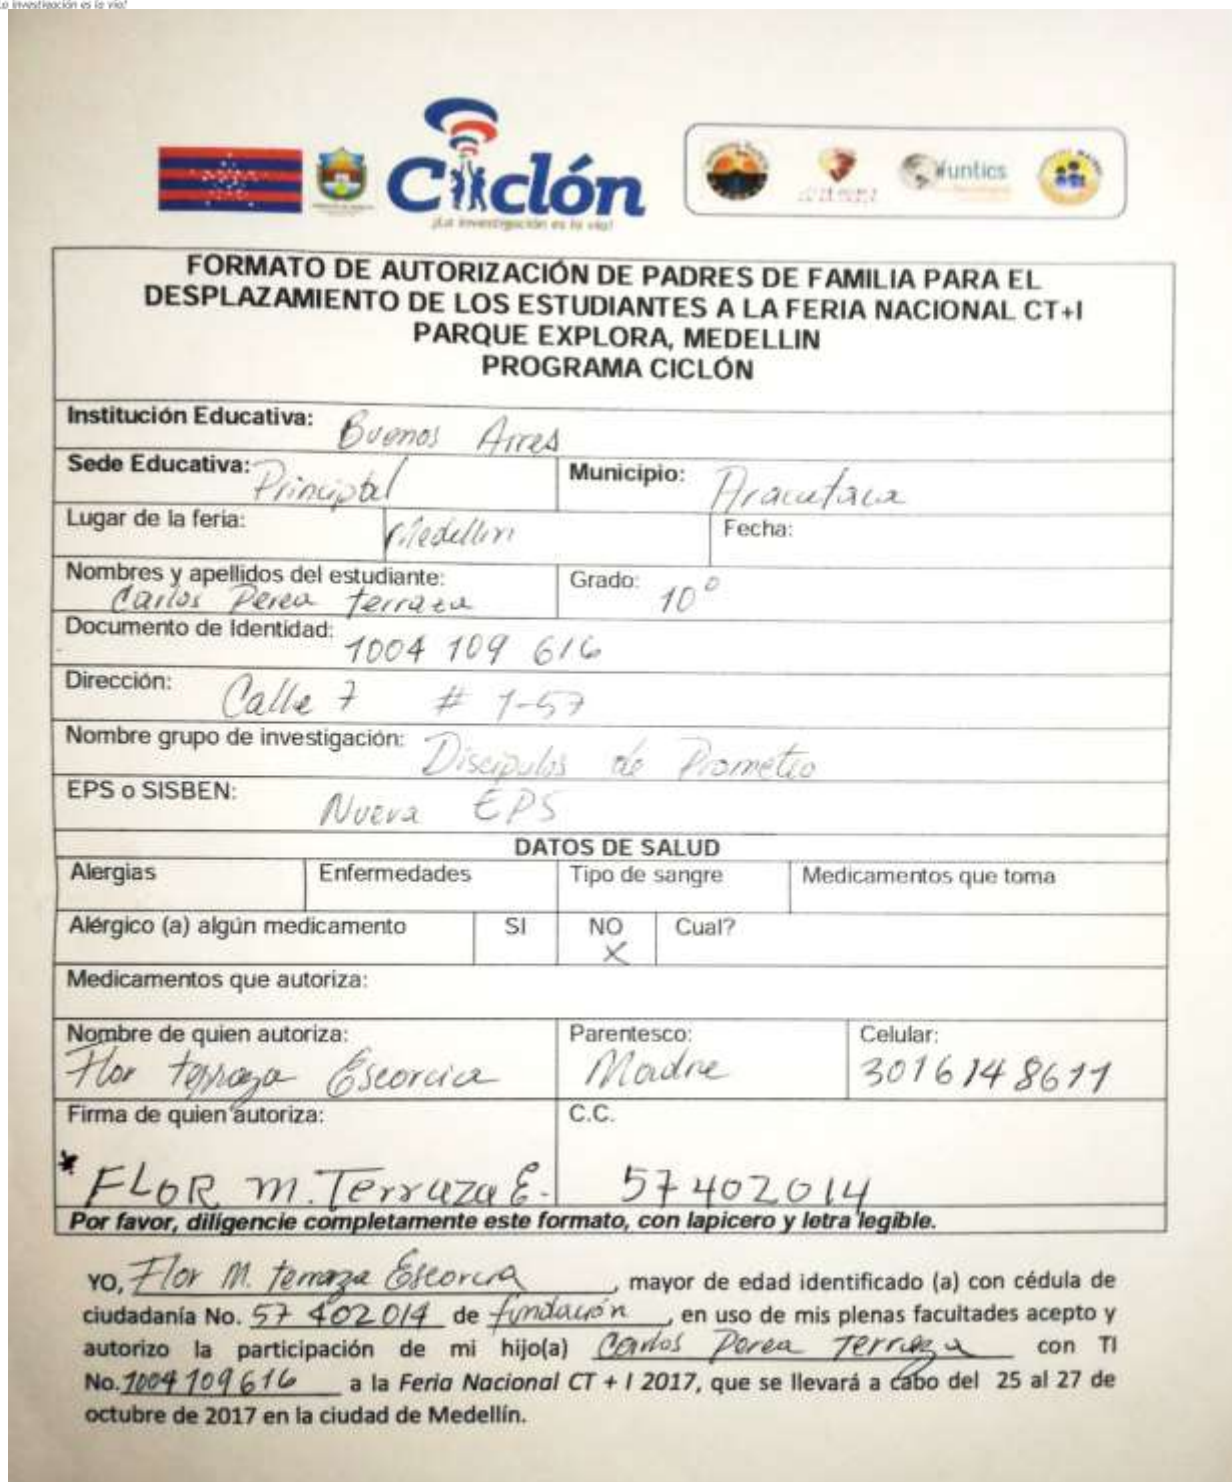 La investigación es la vía!
Ciclón
¡La investigación es la vía!
funtics
FORMATO DE AUTORIZACIÓN DE PADRES DE FAMILIA PARA EL
DESPLAZAMIENTO DE LOS ESTUDIANTES A LA FERIA NACIONAL CT+I
PARQUE EXPLORA, MEDELLIN
PROGRAMA CICLÓN
Institución Educativa: Buenos Aires
Sede Educativa: Principal Municipio: Aracataca
Lugar de la feria: Medellin Fecha:
Nombres y apellidos del estudiante: Grado: 10°
Carlos Perea terraza
Documento de Identidad: 1004 109 616
Dirección: Calle 7 # 1-57
Nombre grupo de investigación: Discipulos de Prometeo
EPS o SISBEN: Nueva EPS
DATOS DE SALUD
Alergias Enfermedades Tipo de sangre Medicamentos que toma
Alérgico (a) algún medicamento SI NO Cual?
X
Medicamentos que autoriza:
Nombre de quien autoriza: Parentesco: Celular:
Flor terraza Escorcia Madre 3016148611
Firma de quien autoriza: C.C.
* FLOR M. Terraza E. 57402014
Por favor, diligencie completamente este formato, con lapicero y letra legible.
YO, Flor M. terraza Escorcia, mayor de edad identificado (a) con cédula de
ciudadanía No. 57 402014 de fundación, en uso de mis plenas facultades acepto y
autorizo la participación de mi hijo(a) Carlos Perea Terraza con TI
No. 1004 109616 a la Feria Nacional CT + I 2017, que se llevará a cabo del 25 al 27 de
octubre de 2017 en la ciudad de Medellín.